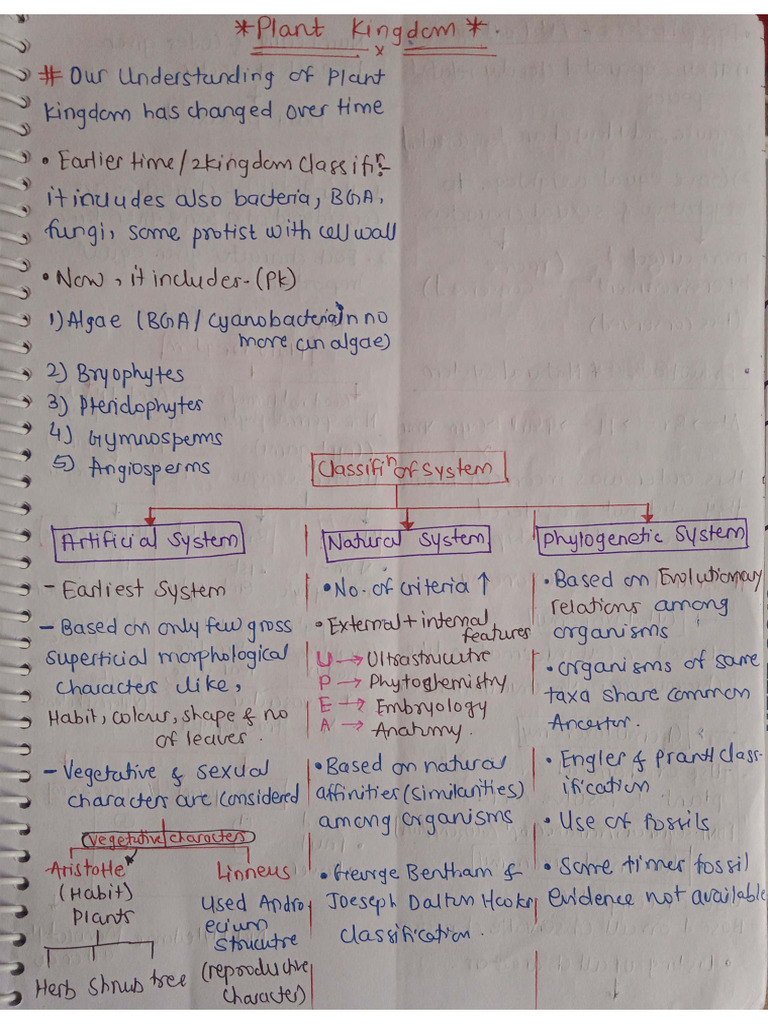 *Plant Kingdom*.
x
# Our Understanding of Plant
Kingdom has changed over time
• Earlier time/2kingdom Classifiⁿ-
it includes also bacteria, BGA,
fungi, some protist with cell wall
• Now, it includes-(PK)
1) Algae (BGA/cyanobacteria in no
more an algae)
2) Bryophytes
3) Pteridophytes
4) Gymnosperms
5) Angiosperms
Classifiⁿ of System
Artificial System
- Earliest System
- Based on only few gross
superficial morphological
characters like,
Habit, colour, shape & no
of leaves.
- Vegetative & sexual
characters are considered
Vegetative characters
Aristotle
(Habit)
Plants
Herb Shrub tree
Linneus
Used Andro
ecium
Strucutre
(reproductive
character)
Natural System
• No. of criteria ↑
• External + internal
features
U → Ultrastrucutre
P → Phytochemistry
E → Embryology
A → Anatomy.
• Based on natural
affinities (similarities)
among organisms
• George Bentham &
Joeseph Daltun Hooker
classification.
Phylogenetic System
• Based on Evolutionary
relations among
organisms
• organisms of same
taxa share common
Ancestor.
• Engler & prantl class-
ification
• Use of fossils
• Some times fossil
evidence not available